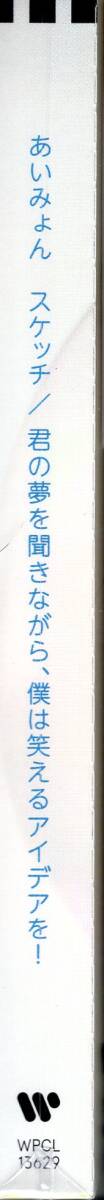 あいみょん　スケッチ / 君の夢を聞きながら、僕は笑えるアイデアを!
WPCL
13629